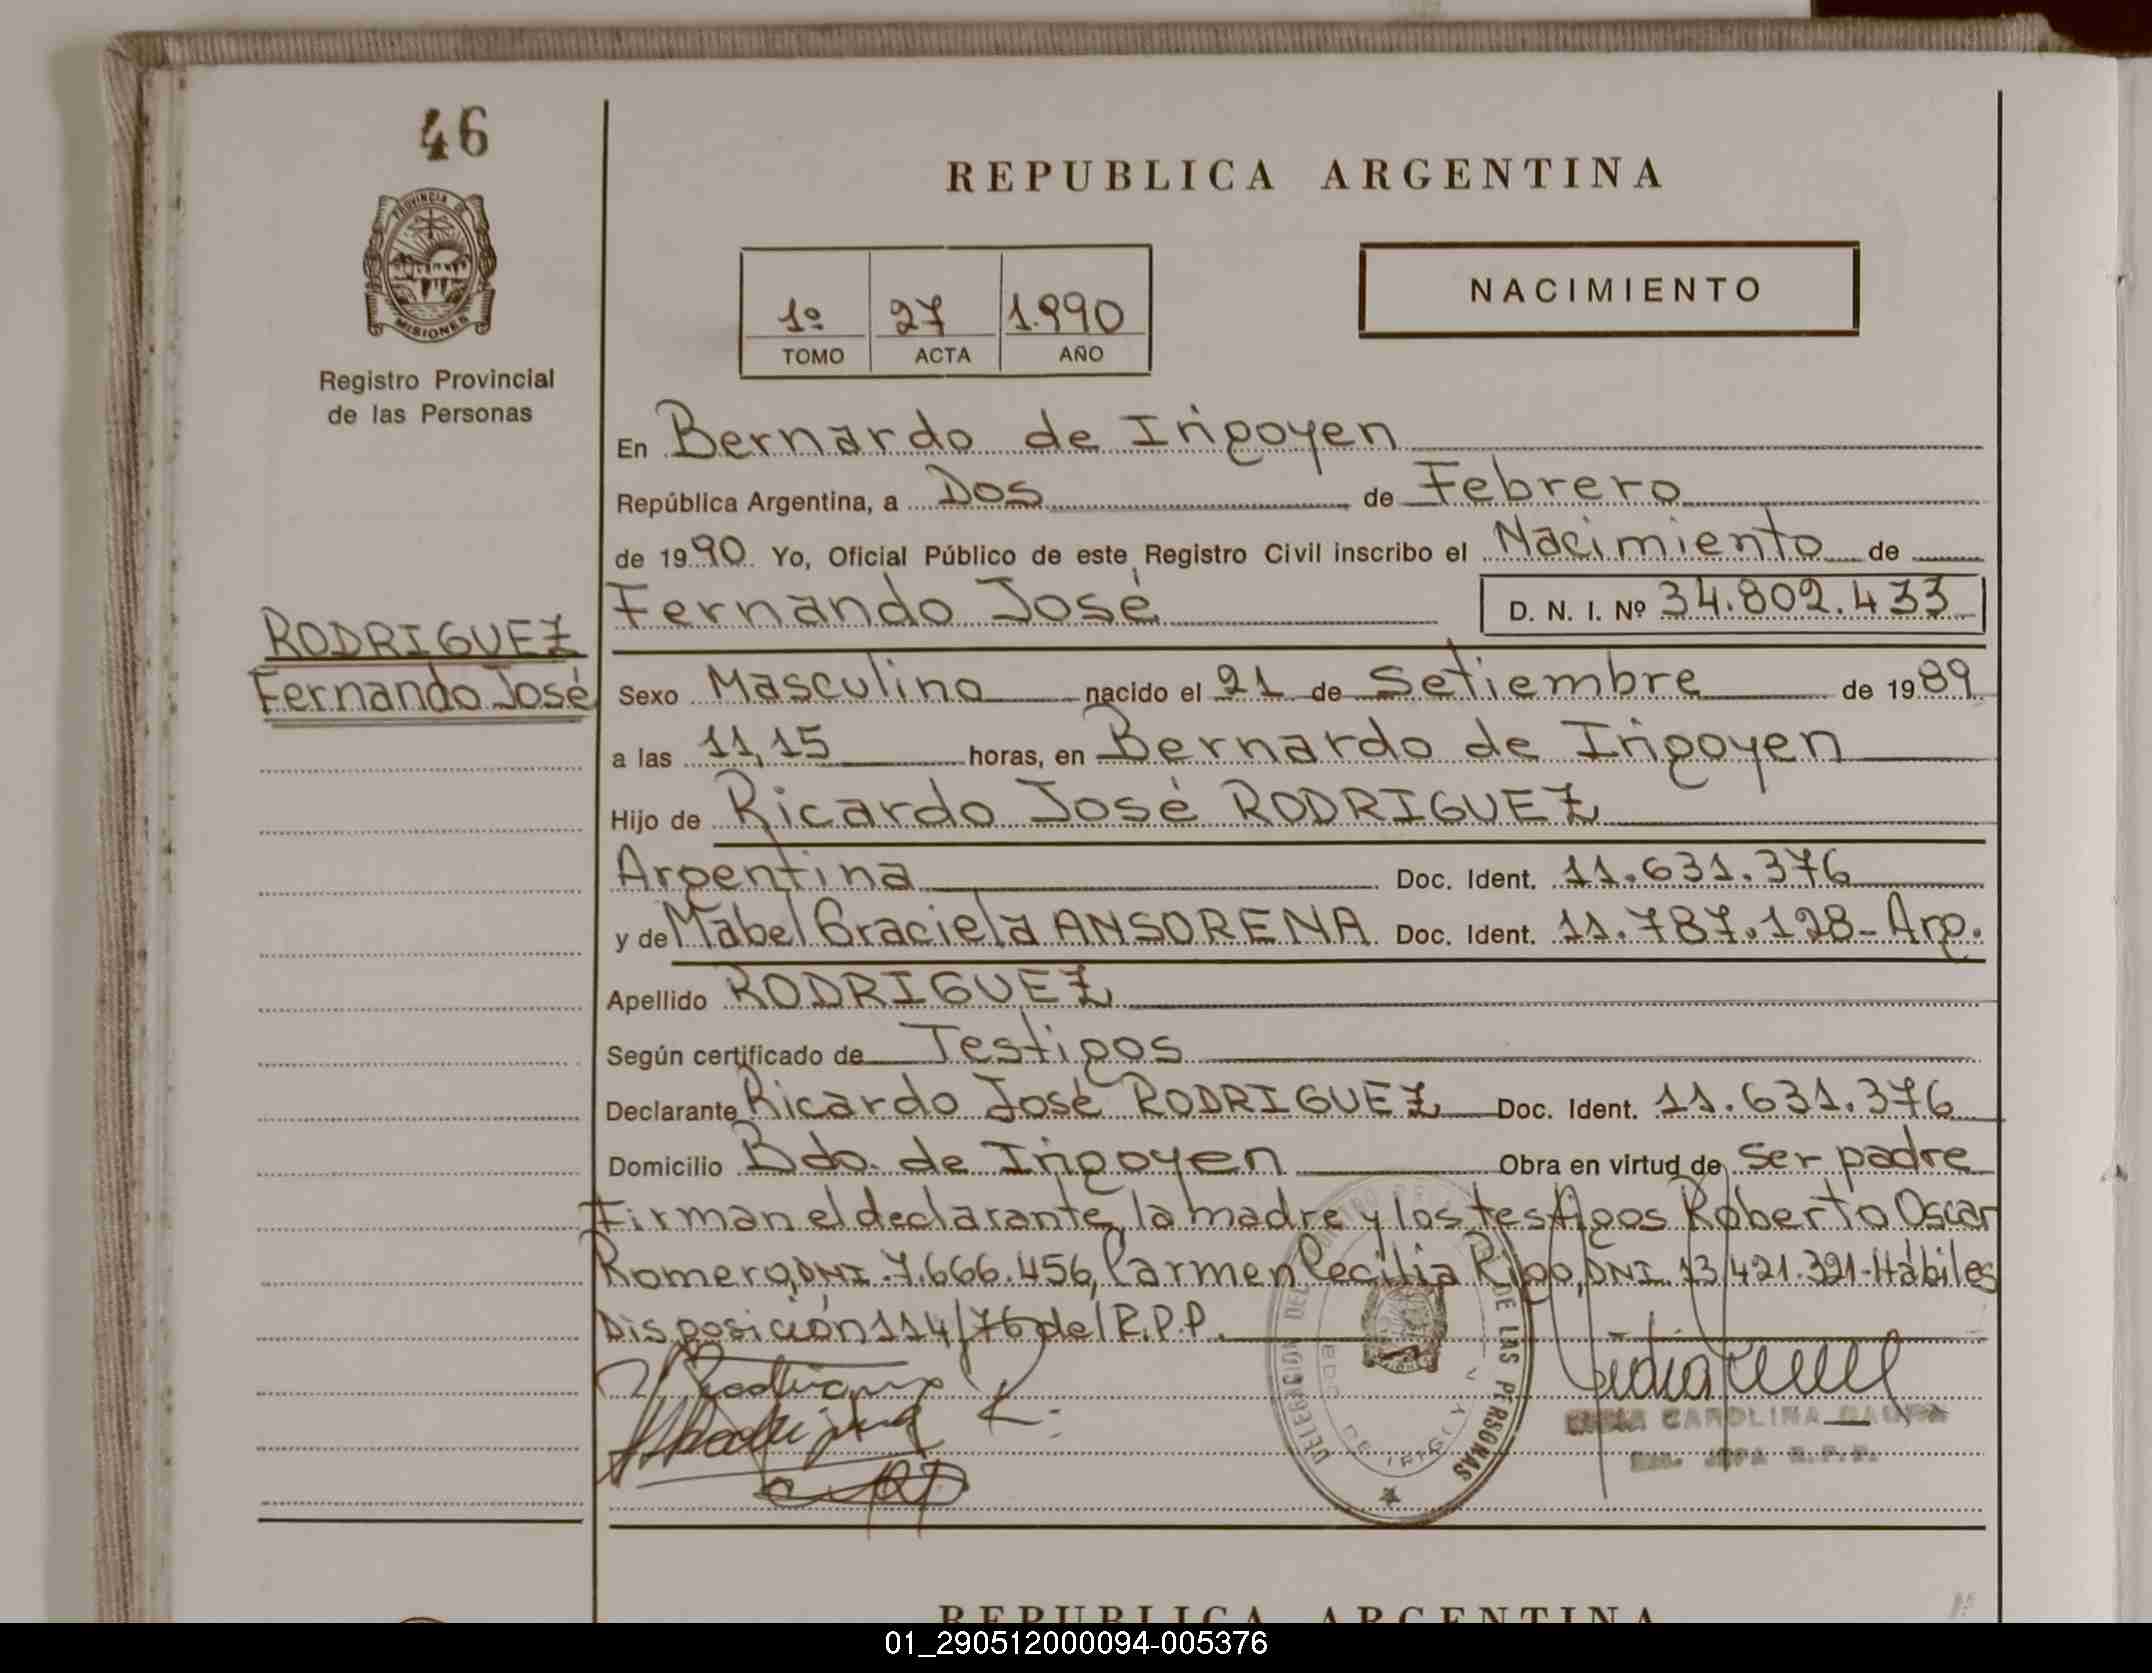 46
REPUBLICA ARGENTINA
PROVINCIA DE
MISIONES
Registro Provincial
de las Personas
1º 27 1.990
TOMO ACTA AÑO
NACIMIENTO
En Bernardo de Irigoyen
República Argentina, a Dos de Febrero
de 1990 Yo, Oficial Público de este Registro Civil inscribo el Nacimiento de
Fernando José D. N. I. Nº 34.802.433
RODRIGUEZ
Fernando José
Sexo Masculino nacido el 21 de Setiembre de 1989
a las 11,15 horas, en Bernardo de Irigoyen
Hijo de Ricardo José RODRIGUEZ
Argentina Doc. Ident. 11.631.376
y de Mabel Graciela ANSORENA Doc. Ident. 11.787.128- Arg.
Apellido RODRIGUEZ
Según certificado de Testigos
Declarante Ricardo José RODRIGUEZ Doc. Ident. 11.631.376
Domicilio Bdo. de Irigoyen Obra en virtud de ser padre
Firman el declarante, la madre y los testigos Roberto Oscar
Romero, DNI. 7.666.456, Carmen Cecilia Rigo, DNI. 13.421.321-Hábiles
Disposición 114/76 del R.P.P.
DELEGACION DEL DE LAS PERSONAS
CAROLINA
JEFA R.P.P.
REPUBLICA ARGENTINA
01_290512000094-005376